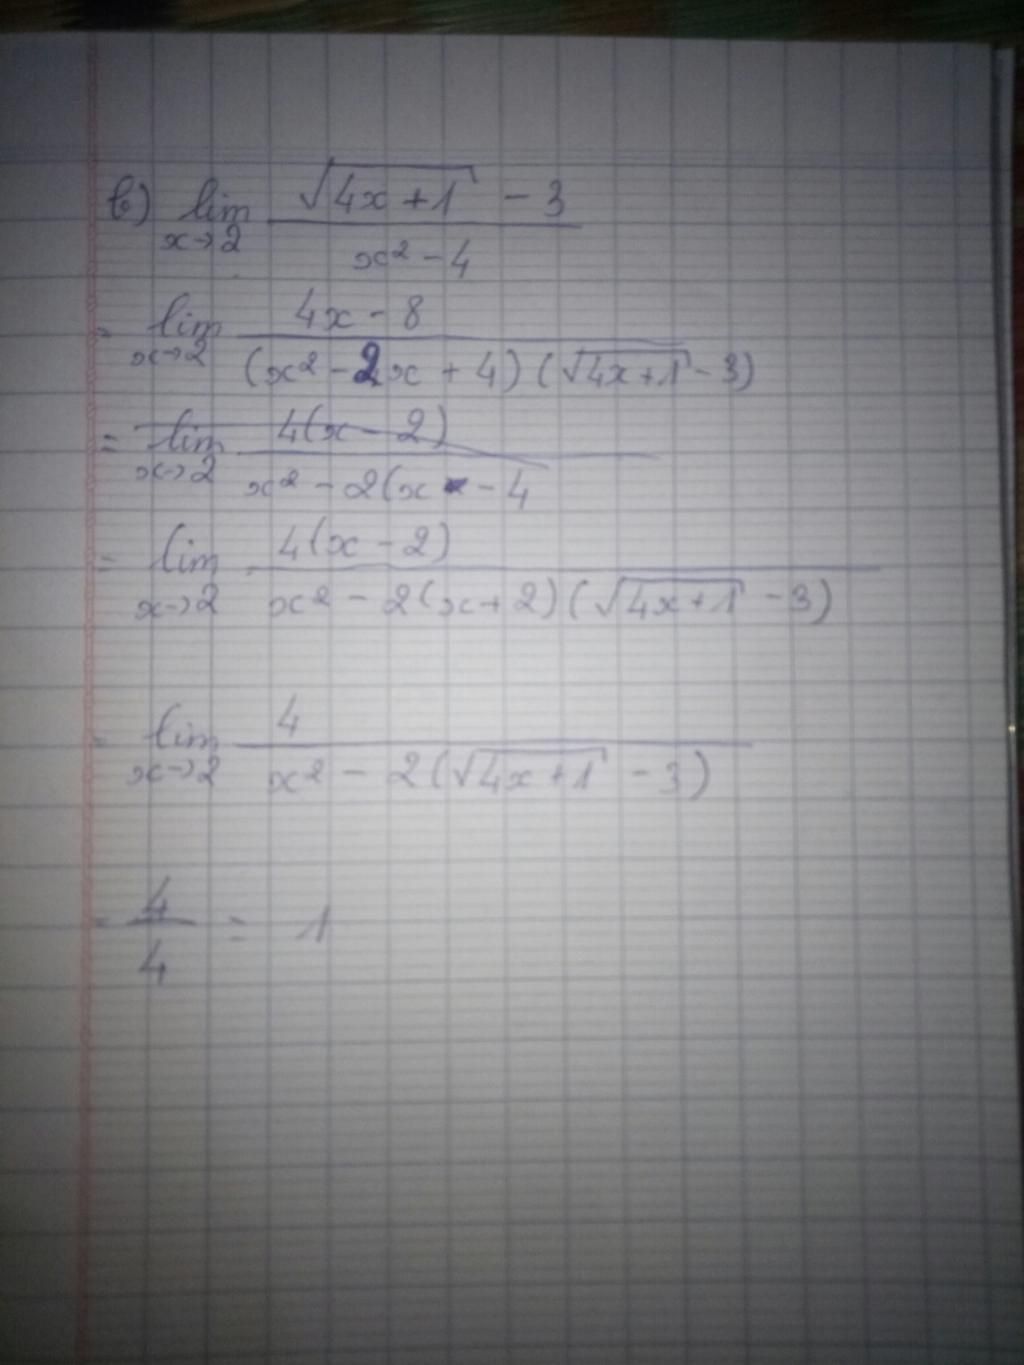 b) lim x→2 (√(4x+1) - 3)/(x² - 4)
= lim x→2 (4x - 8)/((x² - 2x + 4)(√(4x+1) - 3))
= lim x→2 4(x - 2)/(x² - 2(x - 4
= lim x→2 4(x - 2)/(x² - 2(x+2)(√(4x+1) - 3))
= lim x→2 4/(x² - 2(√(4x+1) - 3))
= 4/4 = 1